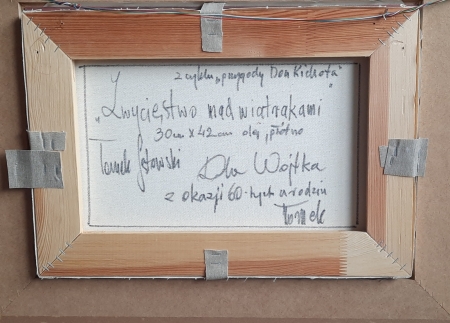 z cyklu „przygody Don Kichota"
„Zwycięstwo nad wiatrakami"
30cm x 42cm olej, płótno
Tomek Sętowski
Dla Wojtka
z okazji 60-tych urodzin
Tomek